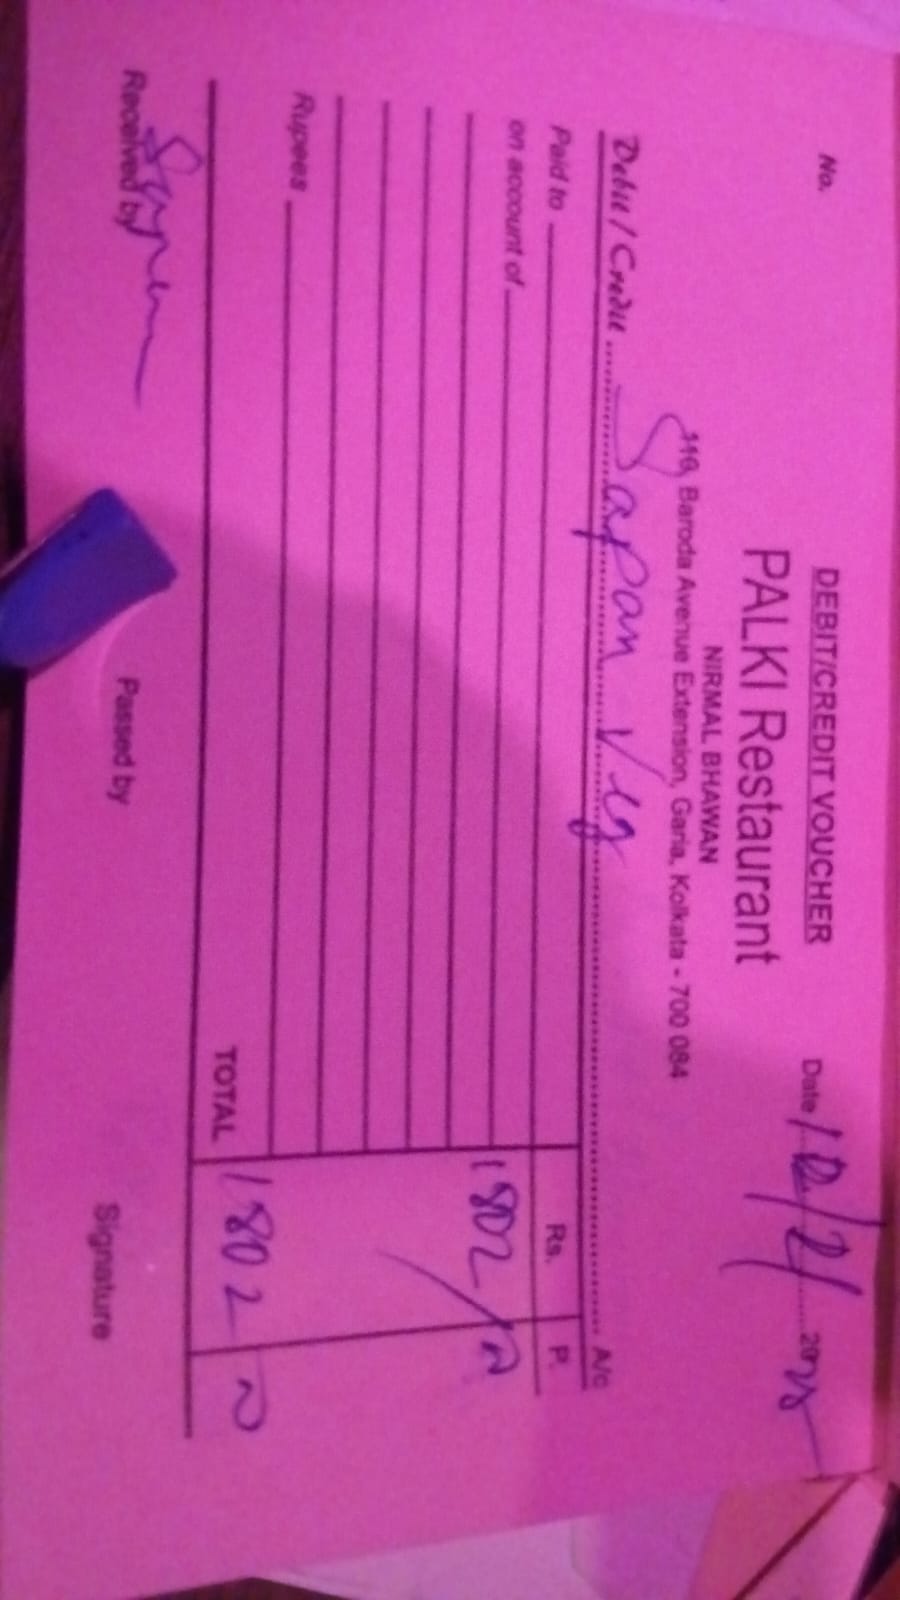 DEBIT/CREDIT VOUCHER
No. Date 12/2/2025
PALKI Restaurant
NIRMAL BHAWAN
116, Baroda Avenue Extension, Garia, Kolkata - 700 084
Debit / Credit Sapan Veg A/c
Paid to Rs. P.
on account of
1802/
Rupees
TOTAL 1802
Received by Passed by Signature